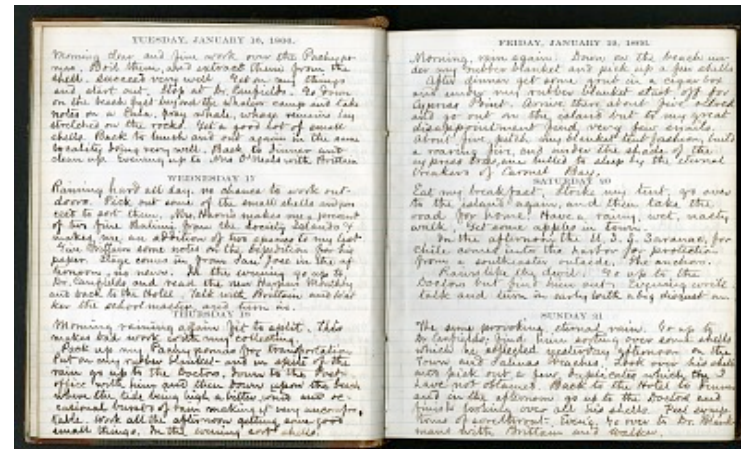 TUESDAY, JANUARY 16, 1866.
Morning clear and fine work over the Pachypo-
mas. Boil them, and extract them from the
shell. Succeed very well. Get on my things
and start out. Stop at Dr. Canfields. Go down
on the beach just beyond the whalers camp and take
notes on a Gray whale, whose remains lay
stretched on the rocks. Get a good lot of small
shells. Back to lunch and out again in the same
locality doing very well. Back to dinner and
clean up. Evening up to Mrs O'Neals with Brittain
WEDNESDAY 17
Raining hard all day. no chance to work out-
doors. Pick out some of the small shells and pro-
ceed to sort them. Mrs. makes me a present
of two fine from the Society Islands &
makes me an addition of two species to my list.
Give Brittain some notes on the Expedition for his
paper. Stage comes in from San Jose in the af-
ternoon, no news. In the evening go up to
Dr. Canfields and read the new Harpers Monthly
and back to the Hotel. Talk with Brittain and Wal-
ker the school master and turn in.
THURSDAY 18
Morning raining again fit to split. This
makes bad work with my collecting.
Pack up my Pachypomas for transportation
Put on my rubber blanket and in spite of the
rain go up to the Doctors, down to the Post
office with him and then down upon the beach
where the tide being high a bitter wind and oc-
casional bursts of rain making it very uncomfor-
table. Work all the afternoon getting some good
small things. In the evening sort shells.
FRIDAY, JANUARY 19, 1866.
Morning, rain again. Down on the beach un-
der my rubber blanket and pick up a few shells
After dinner get some grub in a cigar box
and under my rubber blanket start off for
Cypress Point. Arrive there about five oclock
and go out on the island but to my great
disappointment find very few snails.
About five, pitch my blanket tent fashion, build
a roaring fire, and under the shade of the
cypress trees, am lulled to sleep by the eternal
breakers of Carmel Bay.
SATURDAY 20
Eat my breakfast. Strike my tent, go over
to the island again, and then take the
road for home. Have a rainy, wet, nasty
walk. Get some apples in town.
In the afternoon the U. S. S. Saranac, for
Chile comes into the harbor for protection
from a southeaster outside. She anchors.
Rains like the devil. Go up to the
Doctors but find him out. Evening write
talk and turn in early with a big disgust on.
SUNDAY 21
The same provoking, eternal rain. Go up to
Dr Canfields; find him sorting over some shells
which he collected yesterday afternoon on the
Town and Salinas beaches. Look over his shells
and pick out a few duplicates which I
have not obtained. Back to the Hotel to dinner
and in the afternoon go up to the Doctor and
finish looking over all his shells. Feel symp-
toms of sorethroat. Even'g. Go over to Dr.
mans with Brittain and Walker.